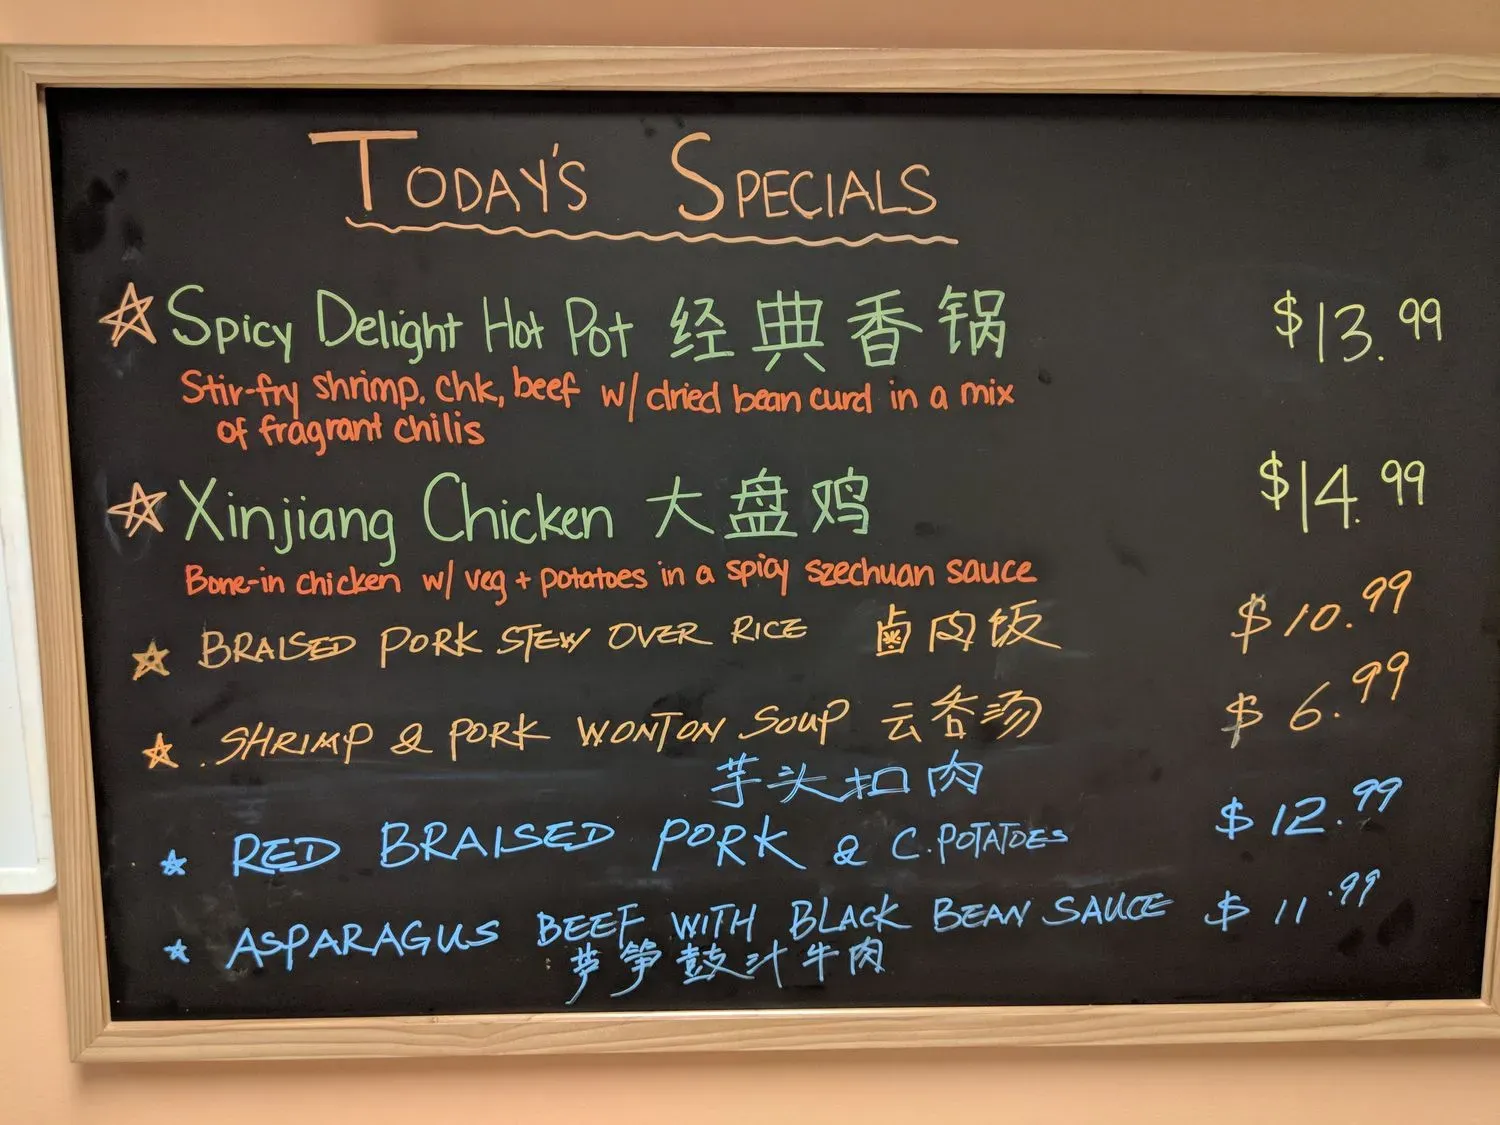 TODAY'S SPECIALS
Spicy Delight Hot Pot 经典香锅 $13.99
Stir-fry shrimp, chk, beef w/ dried bean curd in a mix
of fragrant chilis
Xinjiang Chicken 大盘鸡 $14.99
Bone-in chicken w/ veg + potatoes in a spicy szechuan sauce
BRAISED PORK STEW OVER RICE 卤肉饭 $10.99
SHRIMP & PORK WONTON SOUP 云吞汤 $6.99
芋头扣肉
RED BRAISED PORK & C.POTATOES $12.99
ASPARAGUS BEEF WITH BLACK BEAN SAUCE $11.99
芦笋鼓汁牛肉